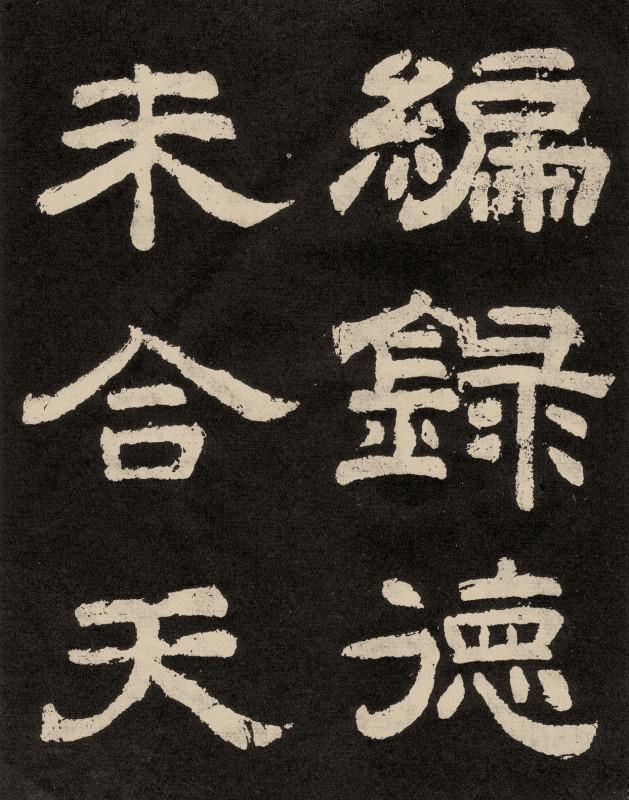 編録德
未合天